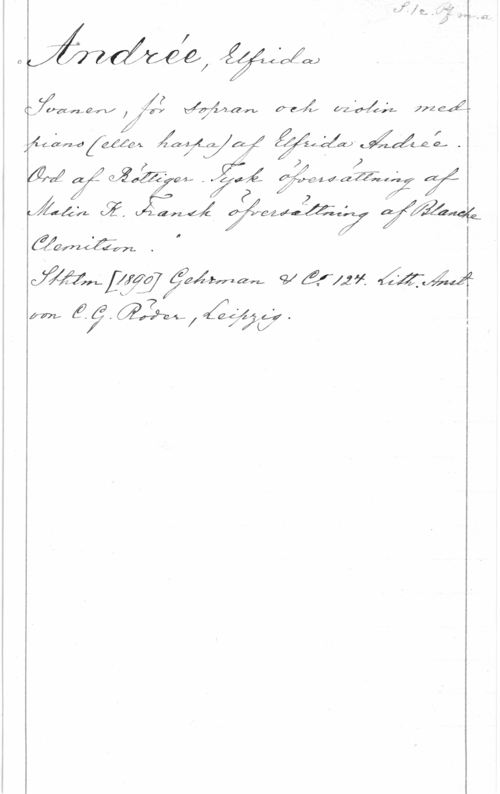 Andrée, Elfrida
Svanen, för sopran och violin med
piano (eller harpa) af Elfrida Andrée.
Ord af Böttiger. Tysk öfversättning af
Malin K. Fransk öfversättning af Blanche
Clemitson.
Sthlm [1890] Gehrman & C:o 124. Lith. Anst.
von C. G. Röder, Leipzig.